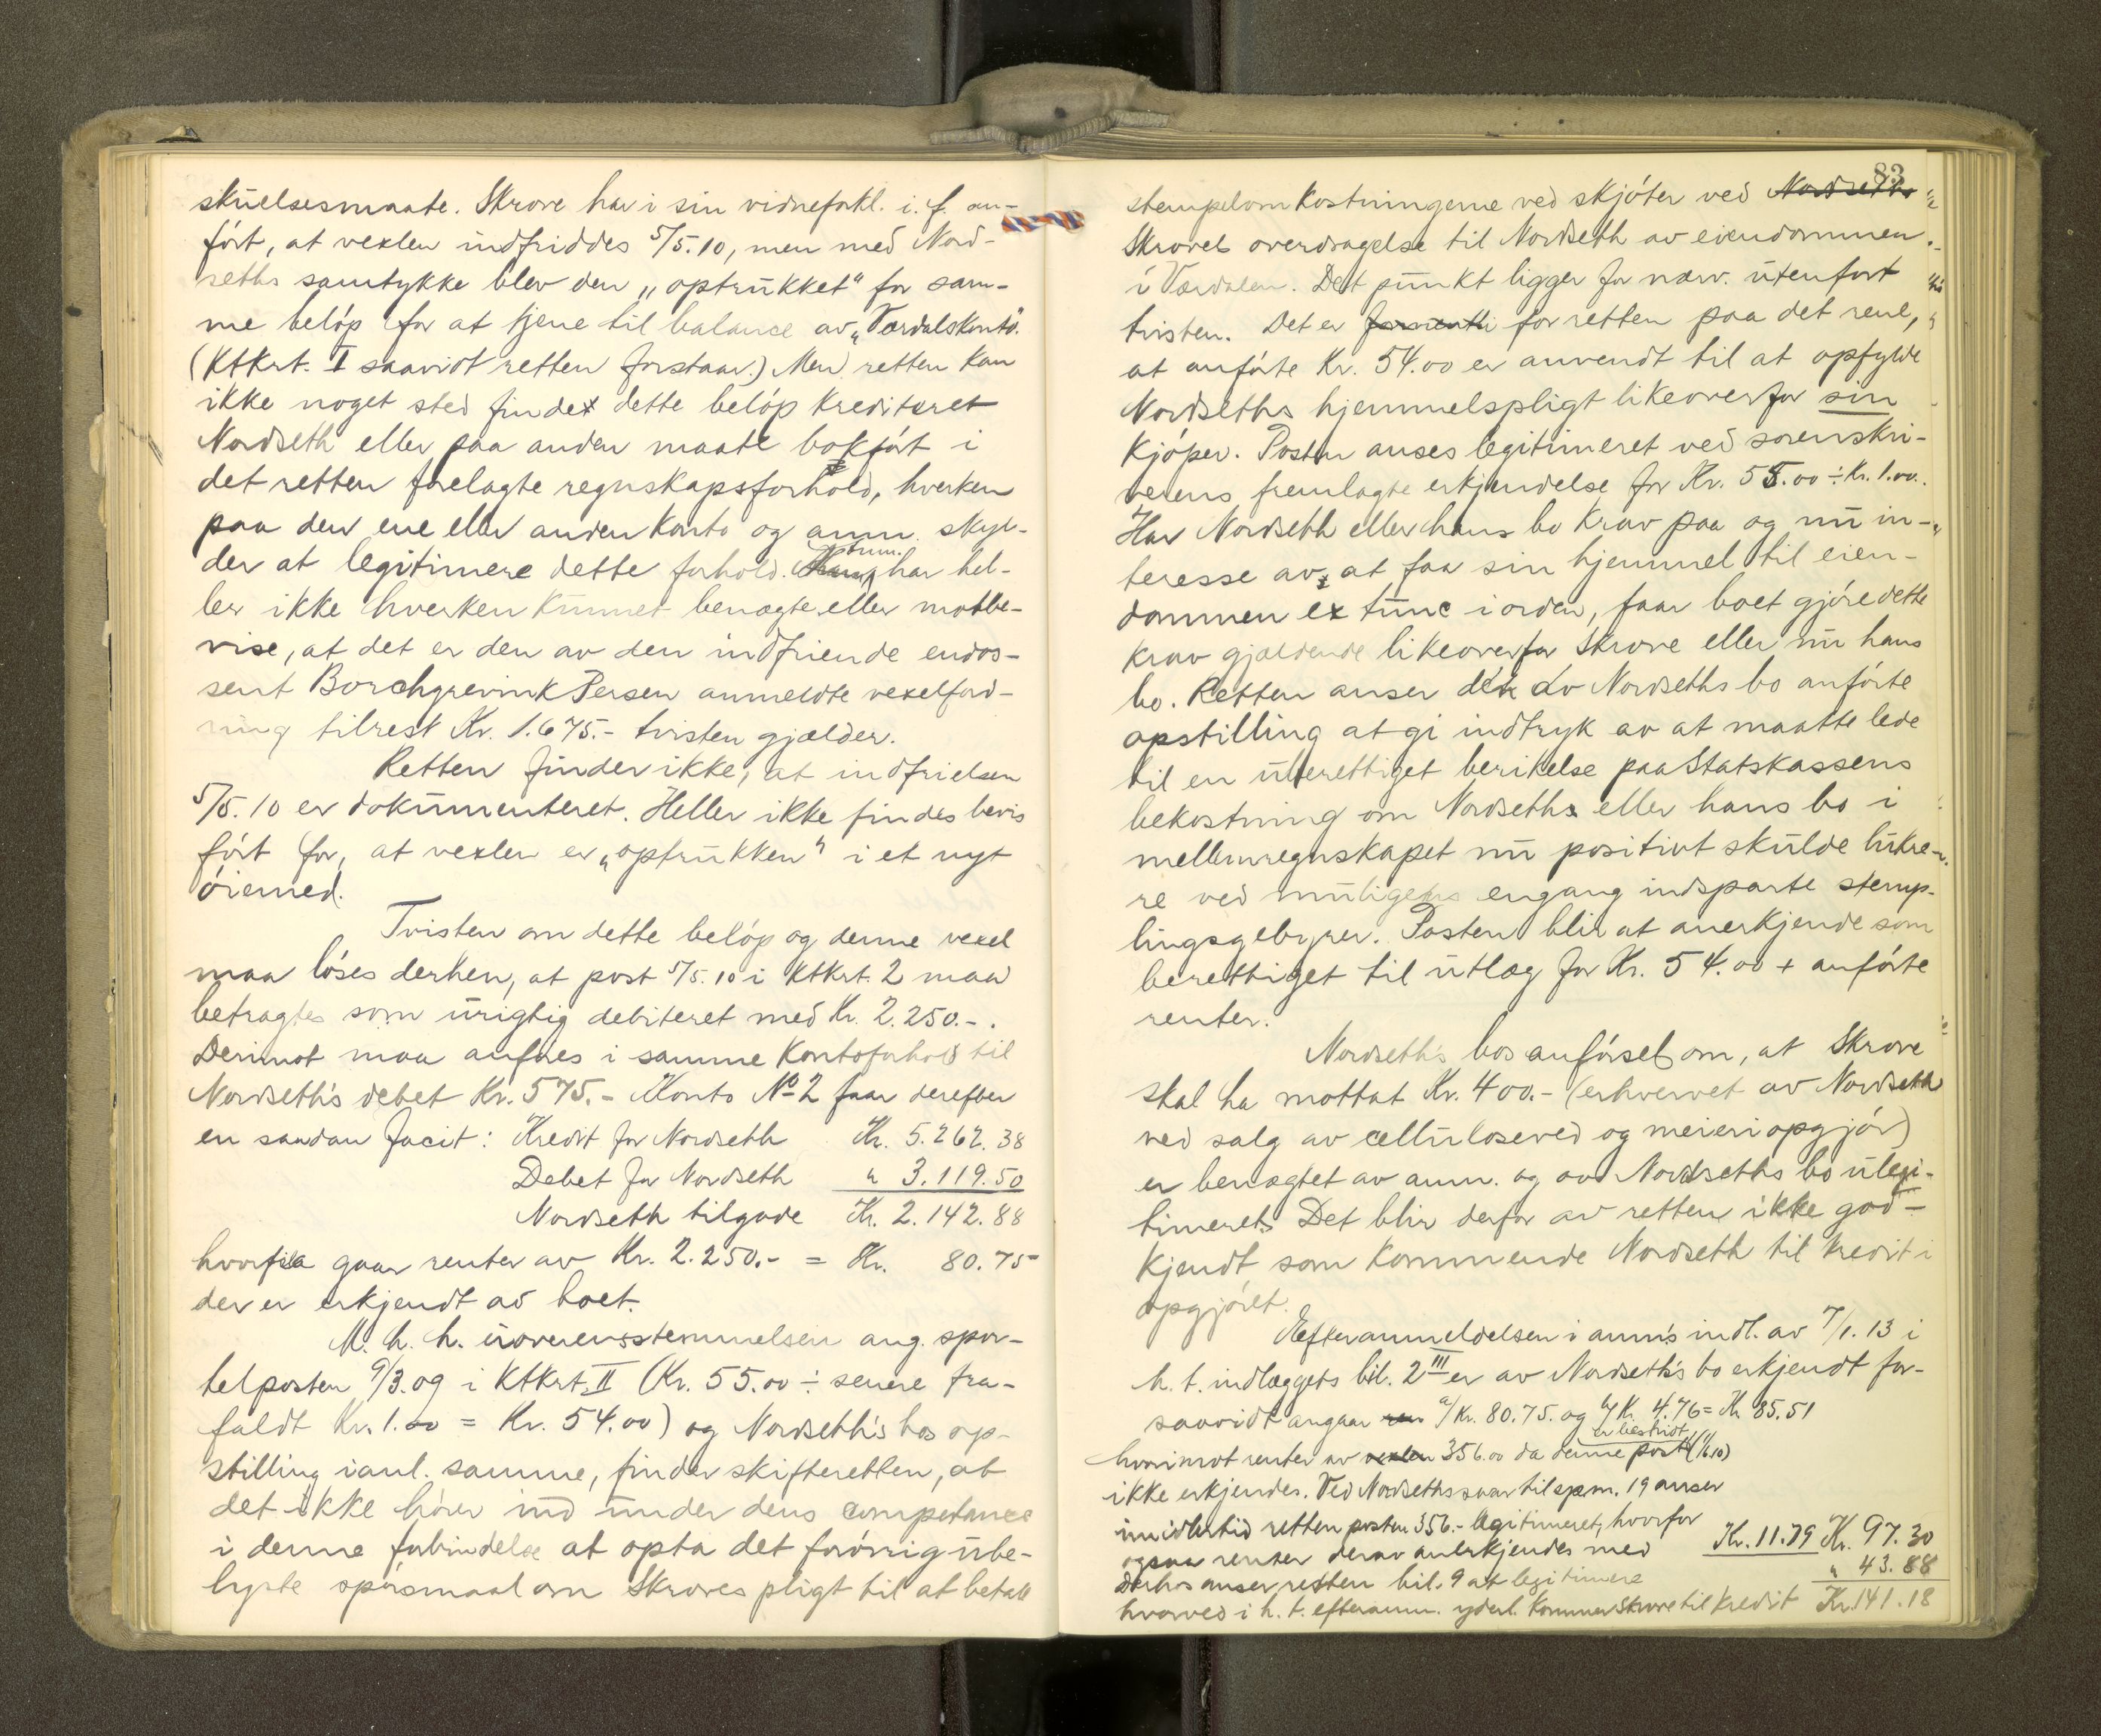 skuelsesmaate. Skrove har i sin vidneforkl. i. f. an-
ført, at vexlen indfriddes 5/5.10, men med Nord-
seths samtykke blev den „optrukket“ for sam-
me beløp for at tjene til balance av „Værdalskonto“.
(Ktkrt. I saavidt retten forstaar.) Men retten kan
ikke noget sted finde dette beløp krediteret
Nordseth eller paa anden maate bokført i
det retten forelagte regnskapsforhold, hverken
paa den ene eller anden konto og anm. skyl-
der at legitimere dette forhold. Anm. har hel-
ler ikke hverken kunnet benægte eller motbe-
vise, at det er den av den indfriende endos-
sent Borchgrevink Persen anmeldte vexelford-
ring tilrest Kr. 1.675.- tvisten gjælder.
Retten finder ikke, at indfrielsen
5/5.10 er dokumenteret. Heller ikke findes bevis
ført for, at vexlen er „optrukken“ i et nyt
øiemed.
Tvisten om dette beløp og denne vexel
maa løses derhen, at post 5/5.10 i Ktkrt. 2 maa
betragtes som urigtig debiteret med Kr. 2.250.-.
Derimot maa anføres i samme kontoforhold til
Nordseth's debet Kr. 575.- Konto No 2 faar derefter
en saadan facit: Kredit for Nordseth Kr. 5.262.38
Debet for Nordseth " 3.119.50
Nordseth tilgode Kr. 2.142.88
hvorfra gaar renter av Kr. 2.250.- = Kr. 80.75
der er erkjendt av boet.
M. h. h. uoverensstemmelsen ang. spor-
telposten 9/3.09 i Ktkrt. II (Kr. 55.00 ÷ senere fra-
faldt Kr. 1.00 = Kr. 54.00) og Nordseth's bos op-
stilling i anl. samme, finder skifteretten, at
det ikke hører ind under dens competance
i denne forbindelse at opta det forøvrig ube-
lyste spørsmaal om Skroves pligt til at betale
83
stempelomkostningerne ved skjøter ved Nordseths
Skroves overdragelse til Nordseth av eiendommen
i Værdalen. Det punkt ligger for nærv. utenfort
tvisten. Det er for retten paa det rene,
at anførte Kr. 54.00 er anvendt til at opfylde
Nordseths hjemmelspligt likeoverfor sin
kjøper. Posten anses legitimeret ved sorenskri-
verens fremlagte erkjendelse for Kr. 55.00 ÷ Kr. 1.00.
Har Nordseth eller hans bo krav paa og nu in-
teresse av, at faa sin hjemmel til eien-
dommen ex tunc i orden, faar boet gjøre dette
krav gjældende likeoverfor Skrove eller nu hans
bo. Retten anser den av Nordseths bo anførte
opstilling at gi indtryk av at maatte lede
til en uberettiget berikelse paa Statskassens
bekostning om Nordseth eller hans bo i
mellemregnskapet nu positivt skulde lukre-
re ved muligens engang indsparte stemp-
lingsgebyrer. Posten blir at anerkjende som
berettiget til utlæg for Kr. 54.00 + anførte
renter.
Nordseth's bos anførsel om, at Skrove
skal ha mottat Kr. 400.- (erhvervet av Nordseth
ved salg av celluloseved og meieriopgjør)
er benægtet av anm. og av Nordseths bo ulegi-
timeret. Det blir derfor av retten ikke god-
kjendt som kommende Nordseth til kredit i
opgjøret.
Efteranmeldelsen i anm's indl. av 7/1.13 i
h. t. indlæggets bil. 2 III er av Nordseth's bo erkjendt for-
saavidt angaar a/ Kr. 80.75. og b/ Kr. 4.76 = Kr. 85.51
hvorimot renter av vexlen 356.00 da denne post er bestridt
ikke erkjendes. Ved Nordseths svar til spm. 19 anser
imidlertid retten posten 356.- legitimeret, hvorfor
ogsaa renter derav anerkjendes med Kr. 11.79 Kr. 97.30
Derhos anser retten bil. 9 at legitimere " 43.88
hvorved i h. t. efteranm. yderl. kommer Skrove til kredit Kr. 141.18